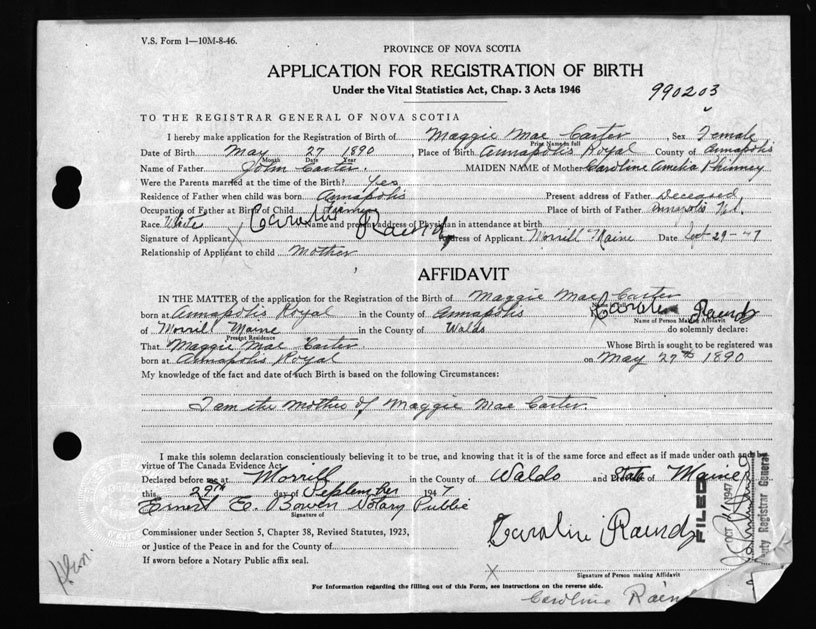 V.S. Form 1—10M-8-46.
PROVINCE OF NOVA SCOTIA
APPLICATION FOR REGISTRATION OF BIRTH
Under the Vital Statistics Act, Chap. 3 Acts 1946
990203
TO THE REGISTRAR GENERAL OF NOVA SCOTIA
I hereby make application for the Registration of Birth of Maggie Mae Carter, Sex Female
Print Name in full
Date of Birth May 27 1890, Place of Birth Annapolis Royal County of Annapolis
Month Date Year
Name of Father John Carter. MAIDEN NAME of Mother Caroline Amelia Phinney
Were the Parents married at the time of the Birth? Yes
Residence of Father when child was born Annapolis Present address of Father Deceased
Occupation of Father at Birth of Child Farmer Place of birth of Father Annapolis N.S.
Race White Name and present address of Physician in attendance at birth
Signature of Applicant X Caroline Raend Address of Applicant Morrill Maine Date Sept 29-47
Relationship of Applicant to child Mother
AFFIDAVIT
IN THE MATTER of the application for the Registration of the Birth of Maggie Mae Carter
Name in full
born at Annapolis Royal in the County of Annapolis X Caroline Raendy
Name of Person Making Affidavit
of Morrill Maine in the County of Waldo do solemnly declare:
Present Residence
That Maggie Mae Carter Whose Birth is sought to be registered was
born at Annapolis Royal on May 27th 1890
My knowledge of the fact and date of such Birth is based on the following Circumstances:
I am the mother of Maggie Mae Carter.
I make this solemn declaration conscientiously believing it to be true, and knowing that it is of the same force and effect as if made under oath and by
virtue of The Canada Evidence Act.
Declared before me at Morrill in the County of Waldo and State of Maine
this 29th day of September 1947
Ernest E. Bowen Notary Public
Signature of
Commissioner under Section 5, Chapter 38, Revised Statutes, 1923,
or Justice of the Peace in and for the County of
If sworn before a Notary Public affix seal.
Caroline Raendy
X
Signature of Person making Affidavit
For Information regarding the filling out of this Form, see instructions on the reverse side.
Caroline Raend
FILED
OCT 1 1947
Deputy Registrar General